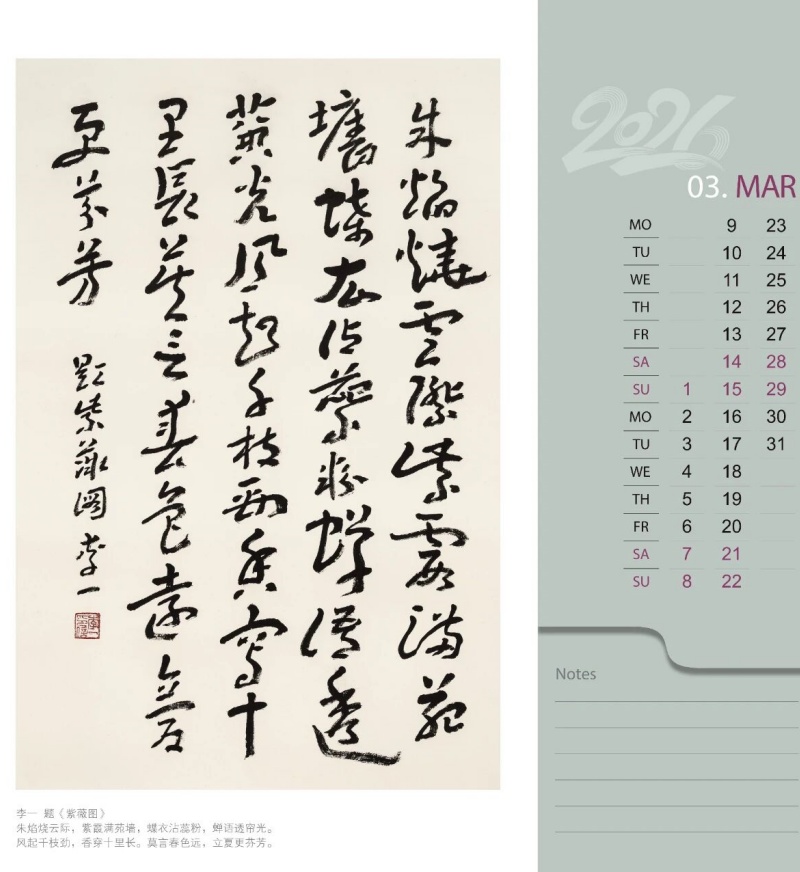 朱焰燒雲際紫霞滿苑
墻蝶衣沾蕊粉蟬語透
簾光風起千枝勁香穿十
里長莫言春色遠立夏
更芬芳
題紫薇圖 李一
李一 题《紫薇图》
朱焰烧云际，紫霞满苑墙，蝶衣沾蕊粉，蝉语透帘光。
风起千枝劲，香穿十里长。莫言春色远，立夏更芬芳。
2026
03. MAR
MO 9 23
TU 10 24
WE 11 25
TH 12 26
FR 13 27
SA 14 28
SU 1 15 29
MO 2 16 30
TU 3 17 31
WE 4 18
TH 5 19
FR 6 20
SA 7 21
SU 8 22
Notes